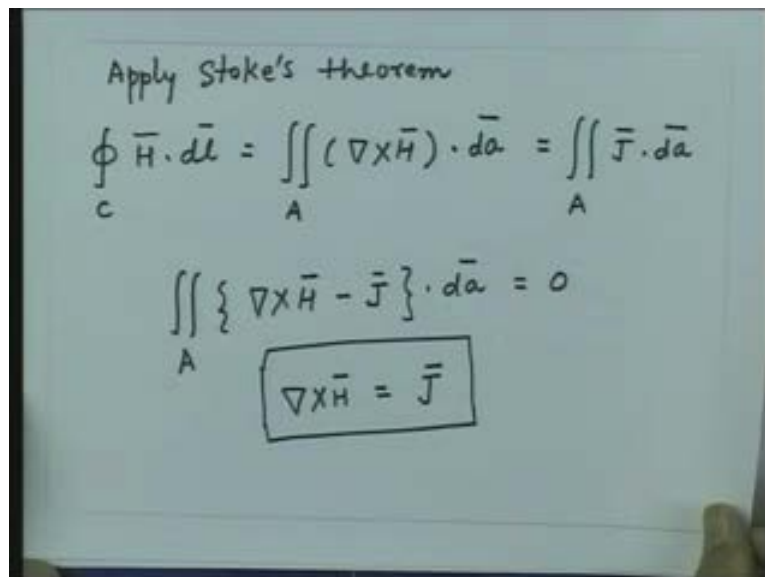 Apply Stoke's theorem
∮ H̄ · dl̄ = ∬ (∇×H̄) · d̄a = ∬ J̄ · d̄a
C A A
∬ { ∇×H̄ − J̄ } · d̄a = 0
A
∇×H̄ = J̄